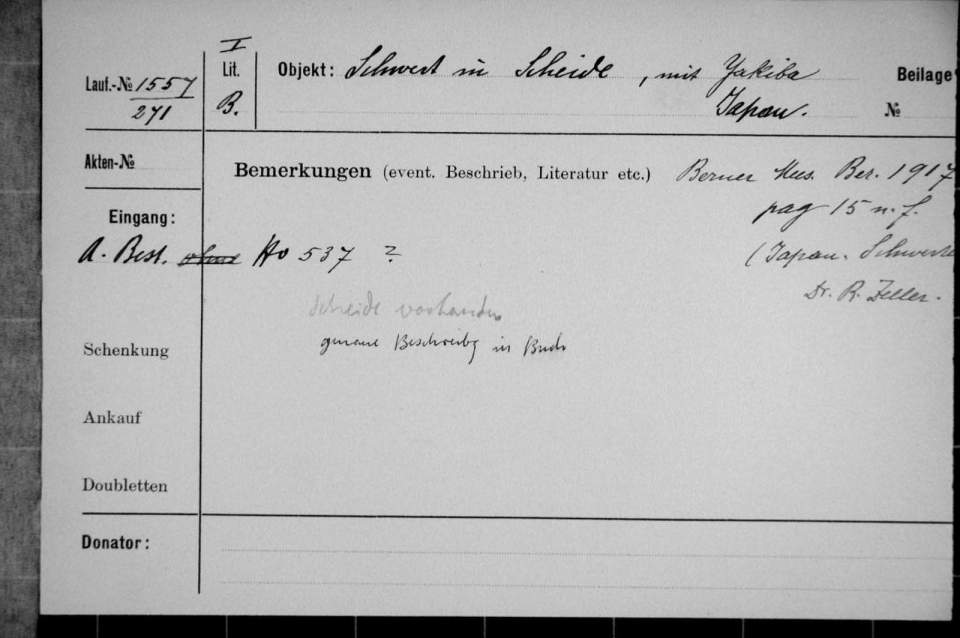 I
Lauf.-№ 1557
271
Lit.
B.
Objekt: Schwert in Scheide, mit Yakiba
Japan.
Beilage
№
Akten-№
Bemerkungen (event. Beschrieb, Literatur etc.) Berner Mus. Ber. 1917
pag 15 u. f.
(Japan. Schwerter
Dr. R. Zeller.
Eingang:
A. Best. ohne No 537 ?
Scheide vorhanden
genaue Beschreibg in Buch
Schenkung
Ankauf
Doubletten
Donator: